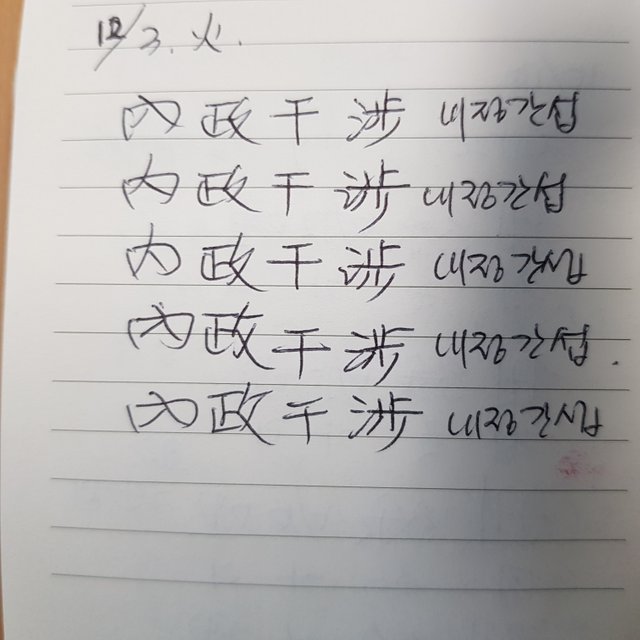 12/3. 火.
內政干涉 내정간섭
內政干涉 내정간섭
內政干涉 내정간섭
內政干涉 내정간섭.
內政干涉 내정간섭